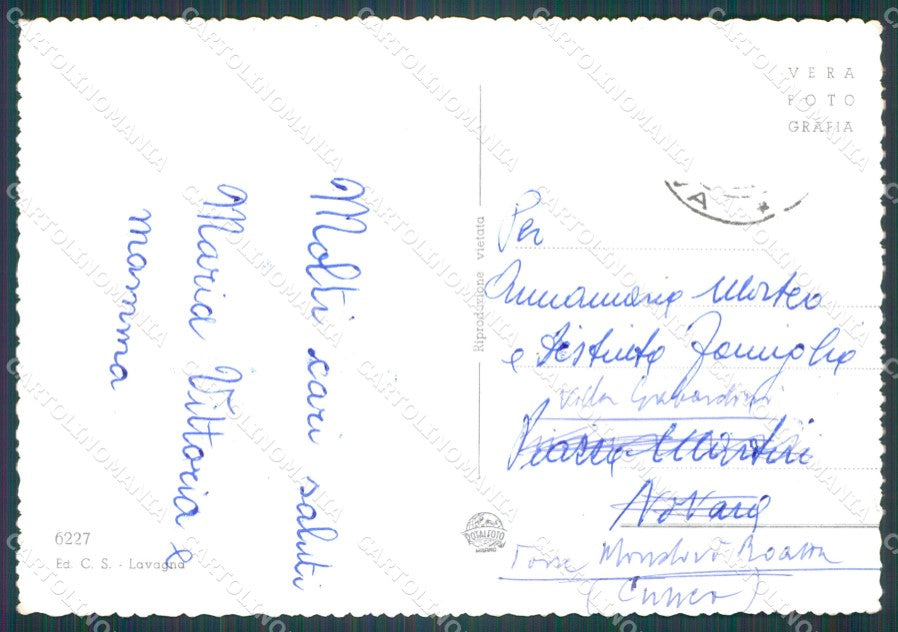 VERA
FOTO
GRAFIA
Molti cari saluti
Maria Vittoria e
mamma
Riproduzione vietata
Per
Annamaria Morteo
e Distinta Famiglia
Villa Gabardini
Piazza Martiri
Novara
Torre Mondovì Roatta
(Cuneo)
6227
Ed. C. S. - Lavagna
TOTALFOTO
MILANO
A
CARTOLINOMANIA